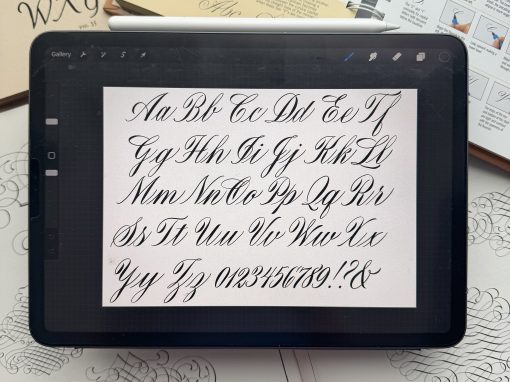 WXY
PRG. 33
Gallery
Aa Bb Cc Dd Ee Ff
Gg Hh Ii Jj Kk Ll
Mm Nn Oo Pp Qq Rr
Ss Tt Uu Vv Ww Xx
Yy Zz 0123456789!?&